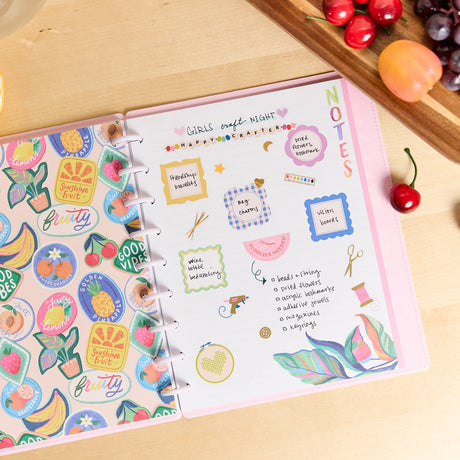 GIRLS craft NIGHT
HAPPY CRAFTER
NOTES
Friendship
bracelets
Dried
flowers
bookmark
bag
charms
vision
boards
wine
bottle
decorating
beads + string
Dried flowers
acrylic bookmarks
adhesive jewels
magazines
keyrings
SUNSHINE
FRUIT
fruity
GOOD
VIBES
GOLDEN
PINEAPPLE
SUNSHINE
FRUIT
fruity
GRAPEFRUIT